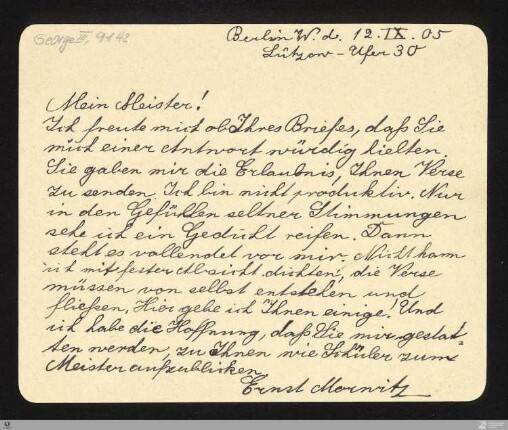 George III, 9142
Berlin W. d. 12. IX. 05
Lützow-Ufer 30
Mein Meister!
Ich freute mich ob Ihres Briefes, daß Sie
mich einer Antwort würdig hielten.
Sie gaben mir die Erlaubnis, Ihnen Verse
zu senden. Ich bin nicht produktiv. Nur
in den Gefühlen seltner Stimmungen
sehe ich ein Gedicht reifen. Dann
steht es vollendet vor mir. Nicht kann
ich mit fester Absicht dichten, die Verse
müssen von selbst entstehen und
fließen, Hier gebe ich Ihnen einige! Und
ich habe die Hoffnung, daß Sie mir gestat-
ten werden, zu Ihnen wie Schüler zum
Meister aufzublicken
Ernst Morwitz